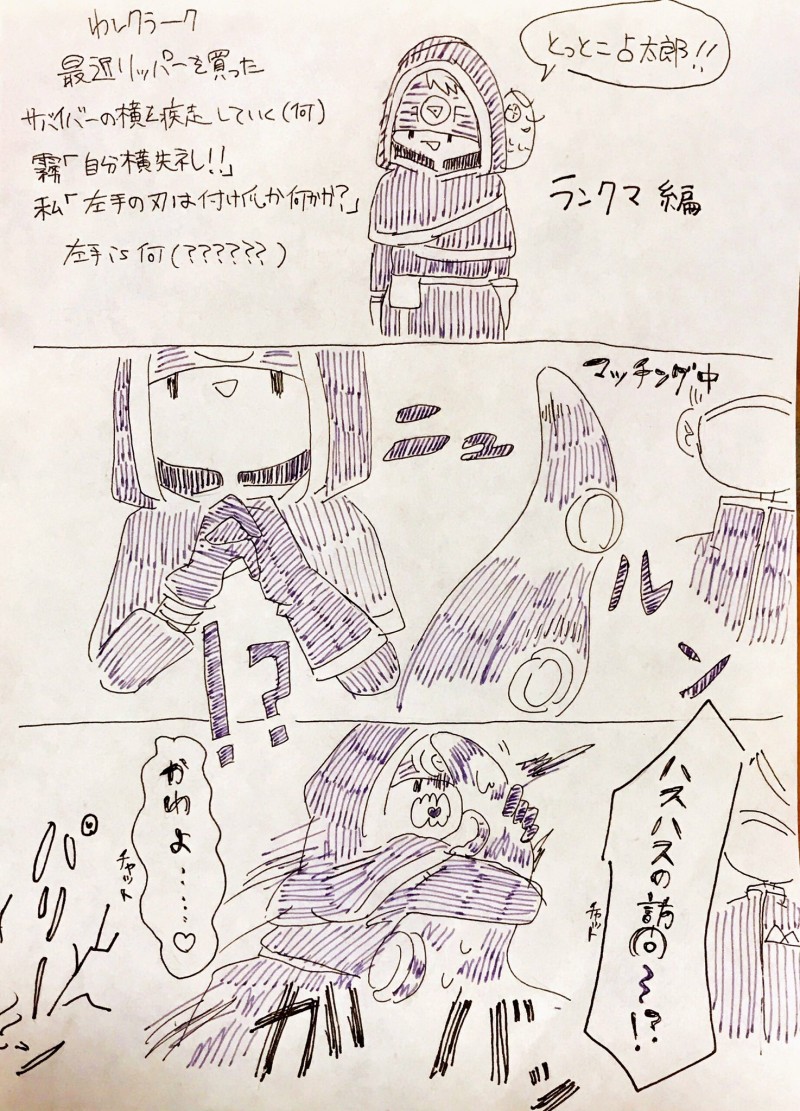 わしクラーク
最近リッパーを買った
サバイバーの横を疾走していく(何)
霧「自分横失礼!!」
私「左手の刃は付け爪か何かか?」
左手is何(??????)
とっとこ占太郎!!
ランクマ編
マッチング中
ニュルン
!?
ハスハスの訪問〜!?
チャット
かわよ……♡
チャット
ガバ
パリーン